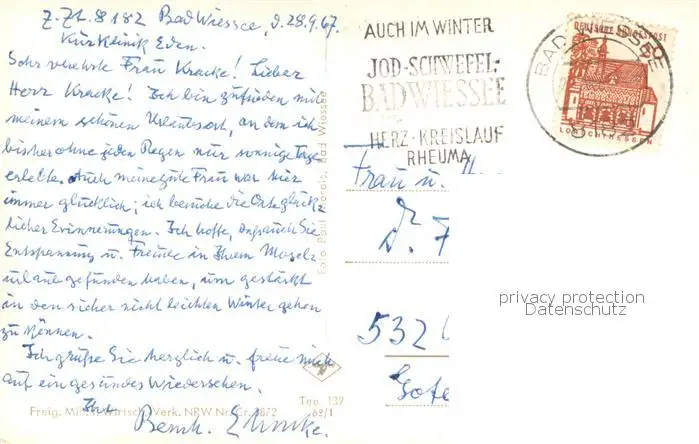 z. Zt. 8182 Bad Wiessee, d. 28.9.67.
Kurklinik Eden.
Sehr verehrte Frau Kracke! Lieber
Herr Kracke! Ich bin zufrieden mit
meinem schönen Urlaubsort, an dem ich
bisher ohne jeden Regen nur sonnige Tage
erlebte. Auch meine gute Frau war hier
immer glücklich; ich besuche die Orte glück-
licher Erinnerungen. Ich hoffe, dass auch Sie
Entspannung u. Freude in Ihrem Mosel-
urlaub gefunden haben, um gestärkt
in den sicher nicht leichten Winter gehen
zu können.
Ich grüße Sie herzlich u. freue mich
auf ein gesundes Wiedersehen.
Ihr
Bernh.
Freig. Min. f. Wirtsch. Verk. NRW Nr. Cr. 8872
Tee 139
68/1
Bad Wiessee
AUCH IM WINTER
JOD-SCHWEFEL-
BAD WIESSEE
HERZ-KREISLAUF
RHEUMA
BAD WIESSEE
DEUTSCHE BUNDESPOST
LORSCH/HESSEN
Frau u. H
Dr. F
532
Gote
privacy protection
Datenschutz